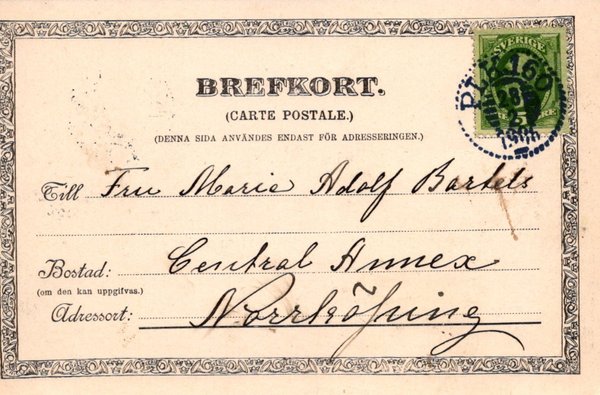 SVERIGE
BREFKORT.
PLK 160
28
(CARTE POSTALE.)
5
(DENNA SIDA ANVÄNDES ENDAST FÖR ADRESSERINGEN.)
Till Fru Maria Adolf Bartels
Bostad: Central Annex
(om den kan uppgifvas.)
Adressort: Norrköping